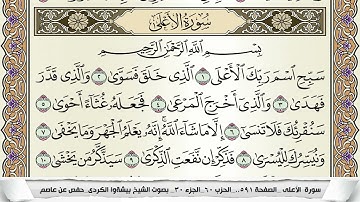 سورة الأعلى
بِسْمِ اللَّهِ الرَّحْمَٰنِ الرَّحِيمِ
سَبِّحِ اسْمَ رَبِّكَ الْأَعْلَى ١ الَّذِي خَلَقَ فَسَوَّىٰ ٢ وَالَّذِي قَدَّرَ
فَهَدَىٰ ٣ وَالَّذِي أَخْرَجَ الْمَرْعَىٰ ٤ فَجَعَلَهُ غُثَاءً أَحْوَىٰ ٥
سَنُقْرِئُكَ فَلَا تَنسَىٰ ٦ إِلَّا مَا شَاءَ اللَّهُ إِنَّهُ يَعْلَمُ الْجَهْرَ وَمَا يَخْفَىٰ ٧
وَنُيَسِّرُكَ لِلْيُسْرَىٰ ٨ فَذَكِّرْ إِن نَّفَعَتِ الذِّكْرَىٰ ٩ سَيَذَّكَّرُ مَن يَخْشَىٰ ١٠
سورة الأعلى_ الصفحة ٥٩١_ الحزب ٦٠_ الجزء ٣٠_ بصوت الشيخ بيشةوا الكردي_ حفص عن عاصم